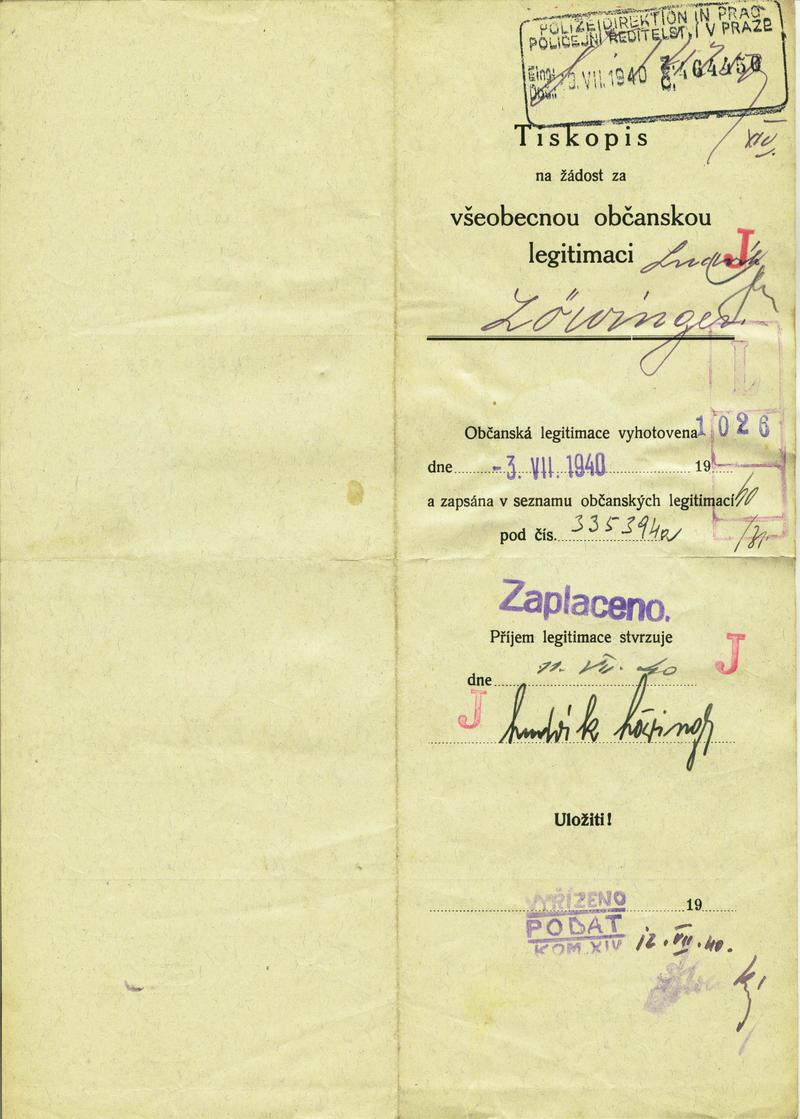 POLIZEIDIREKTION IN PRAG
POLICEJNÍ ŘEDITELSTVÍ V PRAZE
Eing. 3.VII.1940
Č.
XIV.
Tiskopis
na žádost za
všeobecnou občanskou
legitimaci Ludvík
J
Löwinger
L
Občanská legitimace vyhotovena 1026
dne -3. VII. 1940 19
a zapsána v seznamu občanských legitimací
pod čís. 335394
Zaplaceno.
Příjem legitimace stvrzuje
J
dne 11. VII. 40
J
Ludvík Löwinger
Uložiti!
19
VYŘÍZENO
PODAT
KOM. XIV 12. VII. 40.